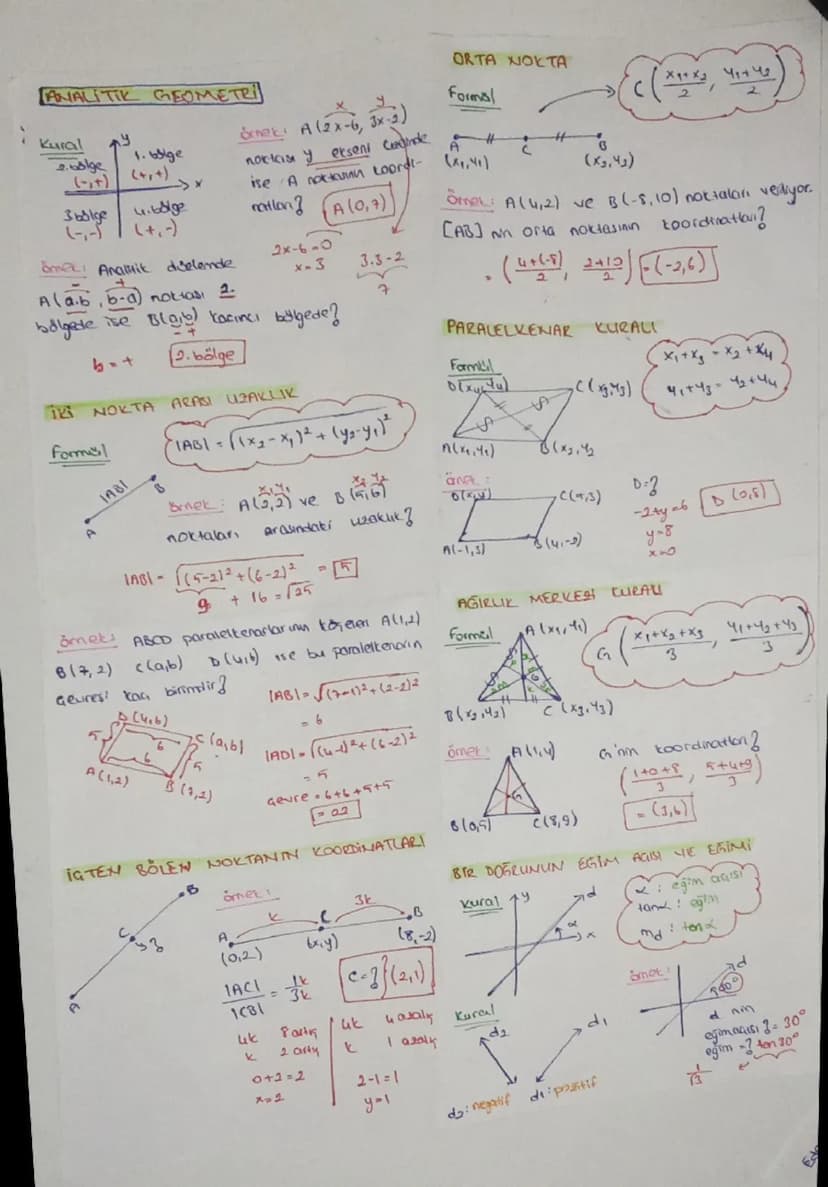 ANALİTİK GEOMETRİ
Kural
y
x
2.bölge
(-,+)
1.bölge
(+,+)
3.bölge
(-,-)
4.bölge
(+,-)
örnek: A(2x-6, 3x-2)
x y
noktası y ekseni üzerinde
ise A noktasının koordi-
natları? A(0,7)
2x-6=0
x=3
3.3-2
7
örnek: Analitik düzlemde
- +
A(a.b, b-a) noktası 2.
bölgede ise B(a,b) kaçıncı bölgede?
- +
b=+ 2.bölge
İKİ NOKTA ARASI UZAKLIK
Formül
|AB| = √(x₂-x₁)² + (y₂-y₁)²
|AB|
A
B
x₁ y₁ x₂ y₂
örnek: A(2,2) ve B(5,6)
noktaları arasındaki uzaklık?
|AB| = √(5-2)²+(6-2)² = 5
9 + 16 = √25
örnek: ABCD paralelkenarlarının köşeleri A(1,2)
B(7,2) C(a,b) D(4,6) ise bu paralelkenarın
çevresi kaç birimdir?
|AB| = √(7-1)²+(2-2)²
= 6
|AD| = √(4-1)²+(6-2)²
= 5
çevre = 6+6+5+5
= 22
D(4,6)
C(a,b)
A(1,2)
B(7,2)
5
6
6
5
İÇTEN BÖLEN NOKTANIN KOORDİNATLARI
A
C
B
örnek:
k
3k
A
C
B
(0,2)
(x,y)
(8,-2)
|AC|
|CB|
= 1k
3k
C=? (2,1)
4k 8 artış
k 2 artış
0+2=2
x=2
4k 4 azalış
k 1 azalış
2-1=1
y=1
ORTA NOKTA
Formül
C (x₁+x₂/2, y₁+y₂/2)
A
C
B
(x₁,y₁)
(x₂,y₂)
örnek: A(4,2) ve B(-8,10) noktaları veriliyor.
[AB] nın orta noktasının koordinatları?
= (4+(-8)/2, 2+10/2) = (-2,6)
PARALELKENAR KURALI
Formül
x₁+x₃ = x₂+x₄
y₁+y₃ = y₂+y₄
D(x₄,y₄)
C(x₃,y₃)
A(x₁,y₁)
B(x₂,y₂
örnek:
D(x,y)
B(4,-2)
D=?
-2+y=6
y=8
x=0
D(0,8)
AĞIRLIK MERKEZİ KURALI
Formül
A(x₁,y₁)
G (x₁+x₂+x₃/3, y₁+y₂+y₃/3)
B(x₂,y₂)
C(x₃,y₃)
örnek:
A(1,4)
G
B(0,5)
C(8,9)
G'nin koordinatları?
(1+0+8/3, 5+4+9/3)
= (3,6)
BİR DOĞRUNUN EĞİM AÇISI VE EĞİMİ
Kural
y
d
α
x
α : eğim açısı
tanα : eğim
md : tanα
Kural
d₂
d₁
d₂: negatif d₁: pozitif
örnek:
d
d nin
eğim açısı ? = 30°
eğim = ? tan30°
1
√3